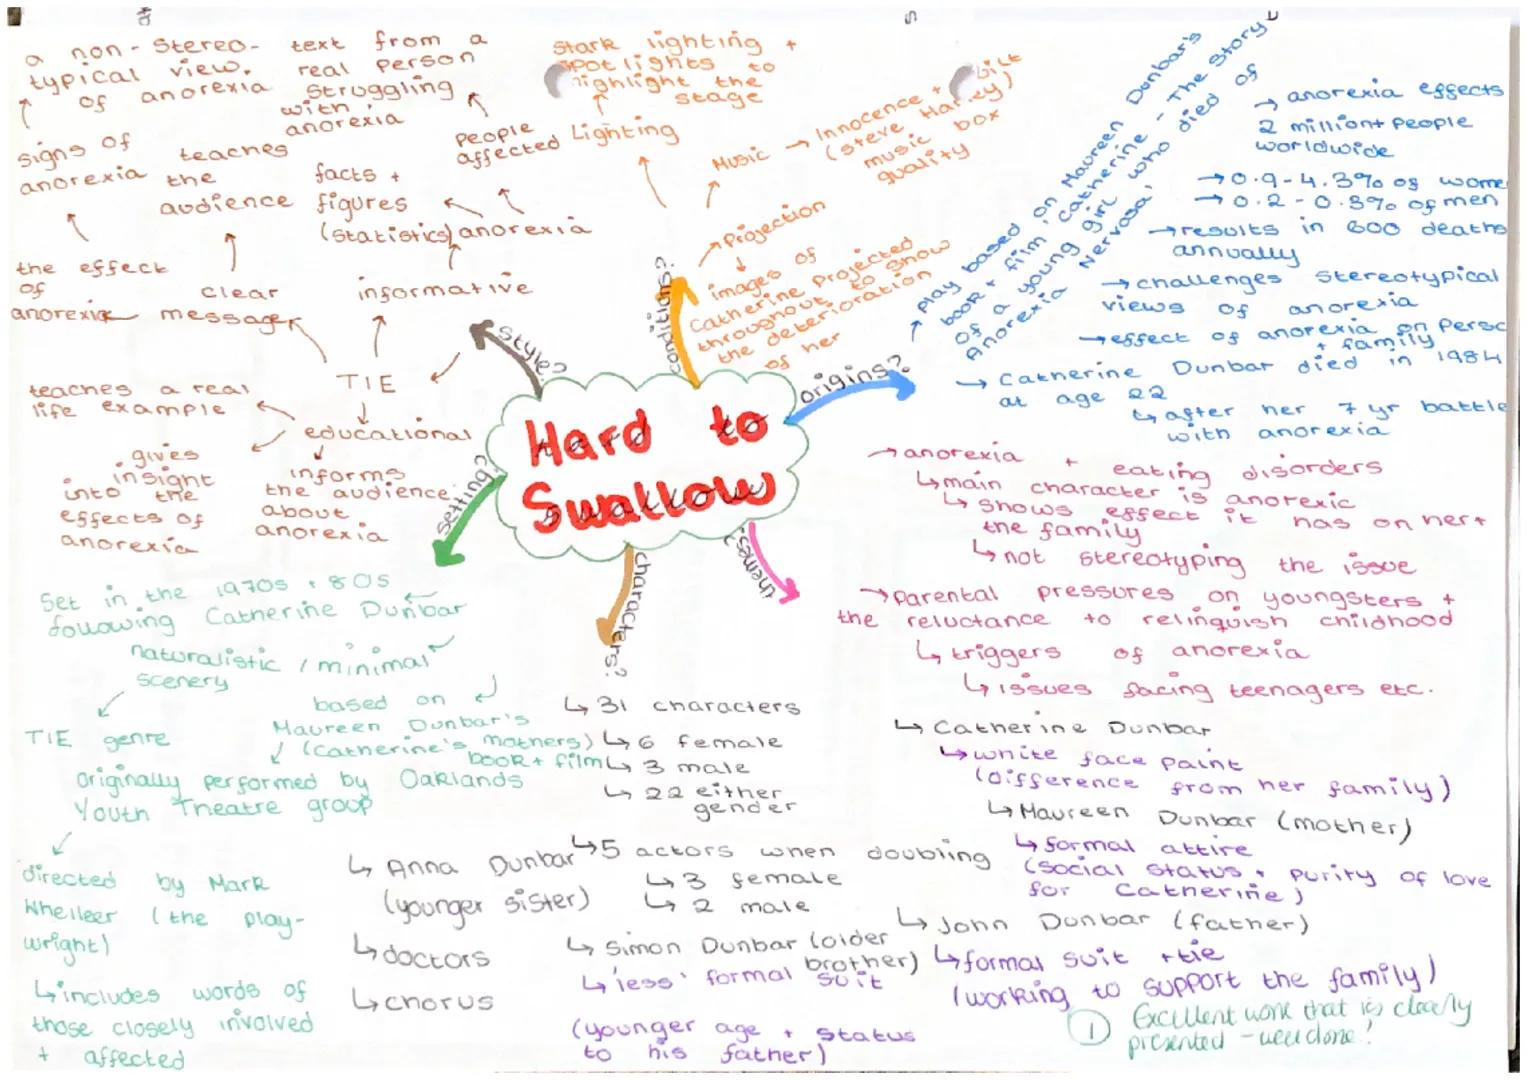 a non-stereo-
typical view.
of anorexia
text from a
real person
struggling
with
anorexia
signs of
anorexia
teaches
the
audience
facts +
figures
(statistics)
people
affected
anorexia
the effect
of
anorexia
clear
message
informative
TIE
teaches a real
life example
educational
gives
insight
into the
effects of
anorexia
informs
the audience
about
anorexia
style?
stark lighting +
spot lights to
highlight the
stage
Lighting
Music → Innocence +
(Steve Harley)
music box
quality
Projection
images of
Catherine projected
throughout to show
the deterioration
of her
origins?
play based on Maureen Dunbar's
book + film 'Catherine - The story
of a young girl who died of
Anorexia Nervosa'
→ anorexia effects
2 million+ people
worldwide
→ 0.9-4.3% of wome
→ 0.2-0.3% of men
→ results in 600 deaths
annually
→ challenges stereotypical
views of anorexia
→ effect of anorexia on perso
+ family
→ Catherine Dunbar died in 1984
at age 22
↳ after her 7 yr battle
with anorexia
Hard to
Swallow
setting?
set in the 1970s + 80s
following Catherine Dunbar
naturalistic / minimal
scenery
based on
Maureen Dunbar's
(Catherine's mothers)
book + film
TIE genre
originally performed by Oaklands
Youth Theatre group
directed by Mark
Wheileer (the play-
wright)
↳ includes words of
those closely involved
+ affected
themes?
→ anorexia + eating disorders
↳ main character is anorexic
↳ shows effect it has on her +
the family
↳ not stereotyping the issue
→ parental pressures on youngsters +
the reluctance to relinquish childhood
↳ triggers of anorexia
↳ issues facing teenagers etc.
characters?
↳ 31 characters
↳ 6 female
↳ 3 male
↳ 22 either
gender
↳ 5 actors when doubling
↳ 3 female
↳ 2 male
↳ Catherine Dunbar
↳ white face paint
(difference from her family)
↳ Maureen Dunbar (mother)
↳ formal attire
(social status + purity of love
for Catherine)
↳ John Dunbar (father)
↳ formal suit + tie
(working to support the family)
↳ Simon Dunbar (older
brother)
↳ 'less' formal suit
(younger age + status
to his father)
↳ Anna Dunbar
(younger sister)
↳ doctors
↳ chorus
① Excellent work that is clearly
presented - well done!